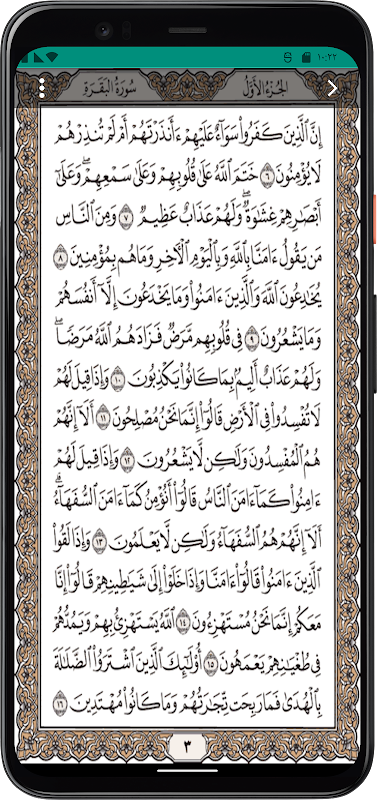 ١٠:٢٢
الجزء الأول سورة البقرة
إِنَّ ٱلَّذِينَ كَفَرُوا۟ سَوَآءٌ عَلَيْهِمْ ءَأَنذَرْتَهُمْ أَمْ لَمْ تُنذِرْهُمْ
لَا يُؤْمِنُونَ ٦ خَتَمَ ٱللَّهُ عَلَىٰ قُلُوبِهِمْ وَعَلَىٰ سَمْعِهِمْ ۖ وَعَلَىٰٓ
أَبْصَٰرِهِمْ غِشَٰوَةٌ ۖ وَلَهُمْ عَذَابٌ عَظِيمٌ ٧ وَمِنَ ٱلنَّاسِ
مَن يَقُولُ ءَامَنَّا بِٱللَّهِ وَبِٱلْيَوْمِ ٱلْءَاخِرِ وَمَا هُم بِمُؤْمِنِينَ ٨
يُخَٰدِعُونَ ٱللَّهَ وَٱلَّذِينَ ءَامَنُوا۟ وَمَا يَخْدَعُونَ إِلَّآ أَنفُسَهُمْ
وَمَا يَشْعُرُونَ ٩ فِى قُلُوبِهِم مَّرَضٌ فَزَادَهُمُ ٱللَّهُ مَرَضًا ۖ
وَلَهُمْ عَذَابٌ أَلِيمٌۢ بِمَا كَانُوا۟ يَكْذِبُونَ ١٠ وَإِذَا قِيلَ لَهُمْ
لَا تُفْسِدُوا۟ فِى ٱلْأَرْضِ قَالُوٓا۟ إِنَّمَا نَحْنُ مُصْلِحُونَ ١١ أَلَآ إِنَّهُمْ
هُمُ ٱلْمُفْسِدُونَ وَلَٰكِن لَّا يَشْعُرُونَ ١٢ وَإِذَا قِيلَ لَهُمْ
ءَامِنُوا۟ كَمَآ ءَامَنَ ٱلنَّاسُ قَالُوٓا۟ أَنُؤْمِنُ كَمَآ ءَامَنَ ٱلسُّفَهَآءُ ۗ
أَلَآ إِنَّهُمْ هُمُ ٱلسُّفَهَآءُ وَلَٰكِن لَّا يَعْلَمُونَ ١٣ وَإِذَا لَقُوا۟
ٱلَّذِينَ ءَامَنُوا۟ قَالُوٓا۟ ءَامَنَّا وَإِذَا خَلَوْا۟ إِلَىٰ شَيَٰطِينِهِمْ قَالُوٓا۟ إِنَّا
مَعَكُمْ إِنَّمَا نَحْنُ مُسْتَهْزِءُونَ ١٤ ٱللَّهُ يَسْتَهْزِئُ بِهِمْ وَيَمُدُّهُمْ
فِى طُغْيَٰنِهِمْ يَعْمَهُونَ ١٥ أُو۟لَٰٓئِكَ ٱلَّذِينَ ٱشْتَرَوُا۟ ٱلضَّلَٰلَةَ
بِٱلْهُدَىٰ فَمَا رَبِحَت تِّجَٰرَتُهُمْ وَمَا كَانُوا۟ مُهْتَدِينَ ١٦
٣